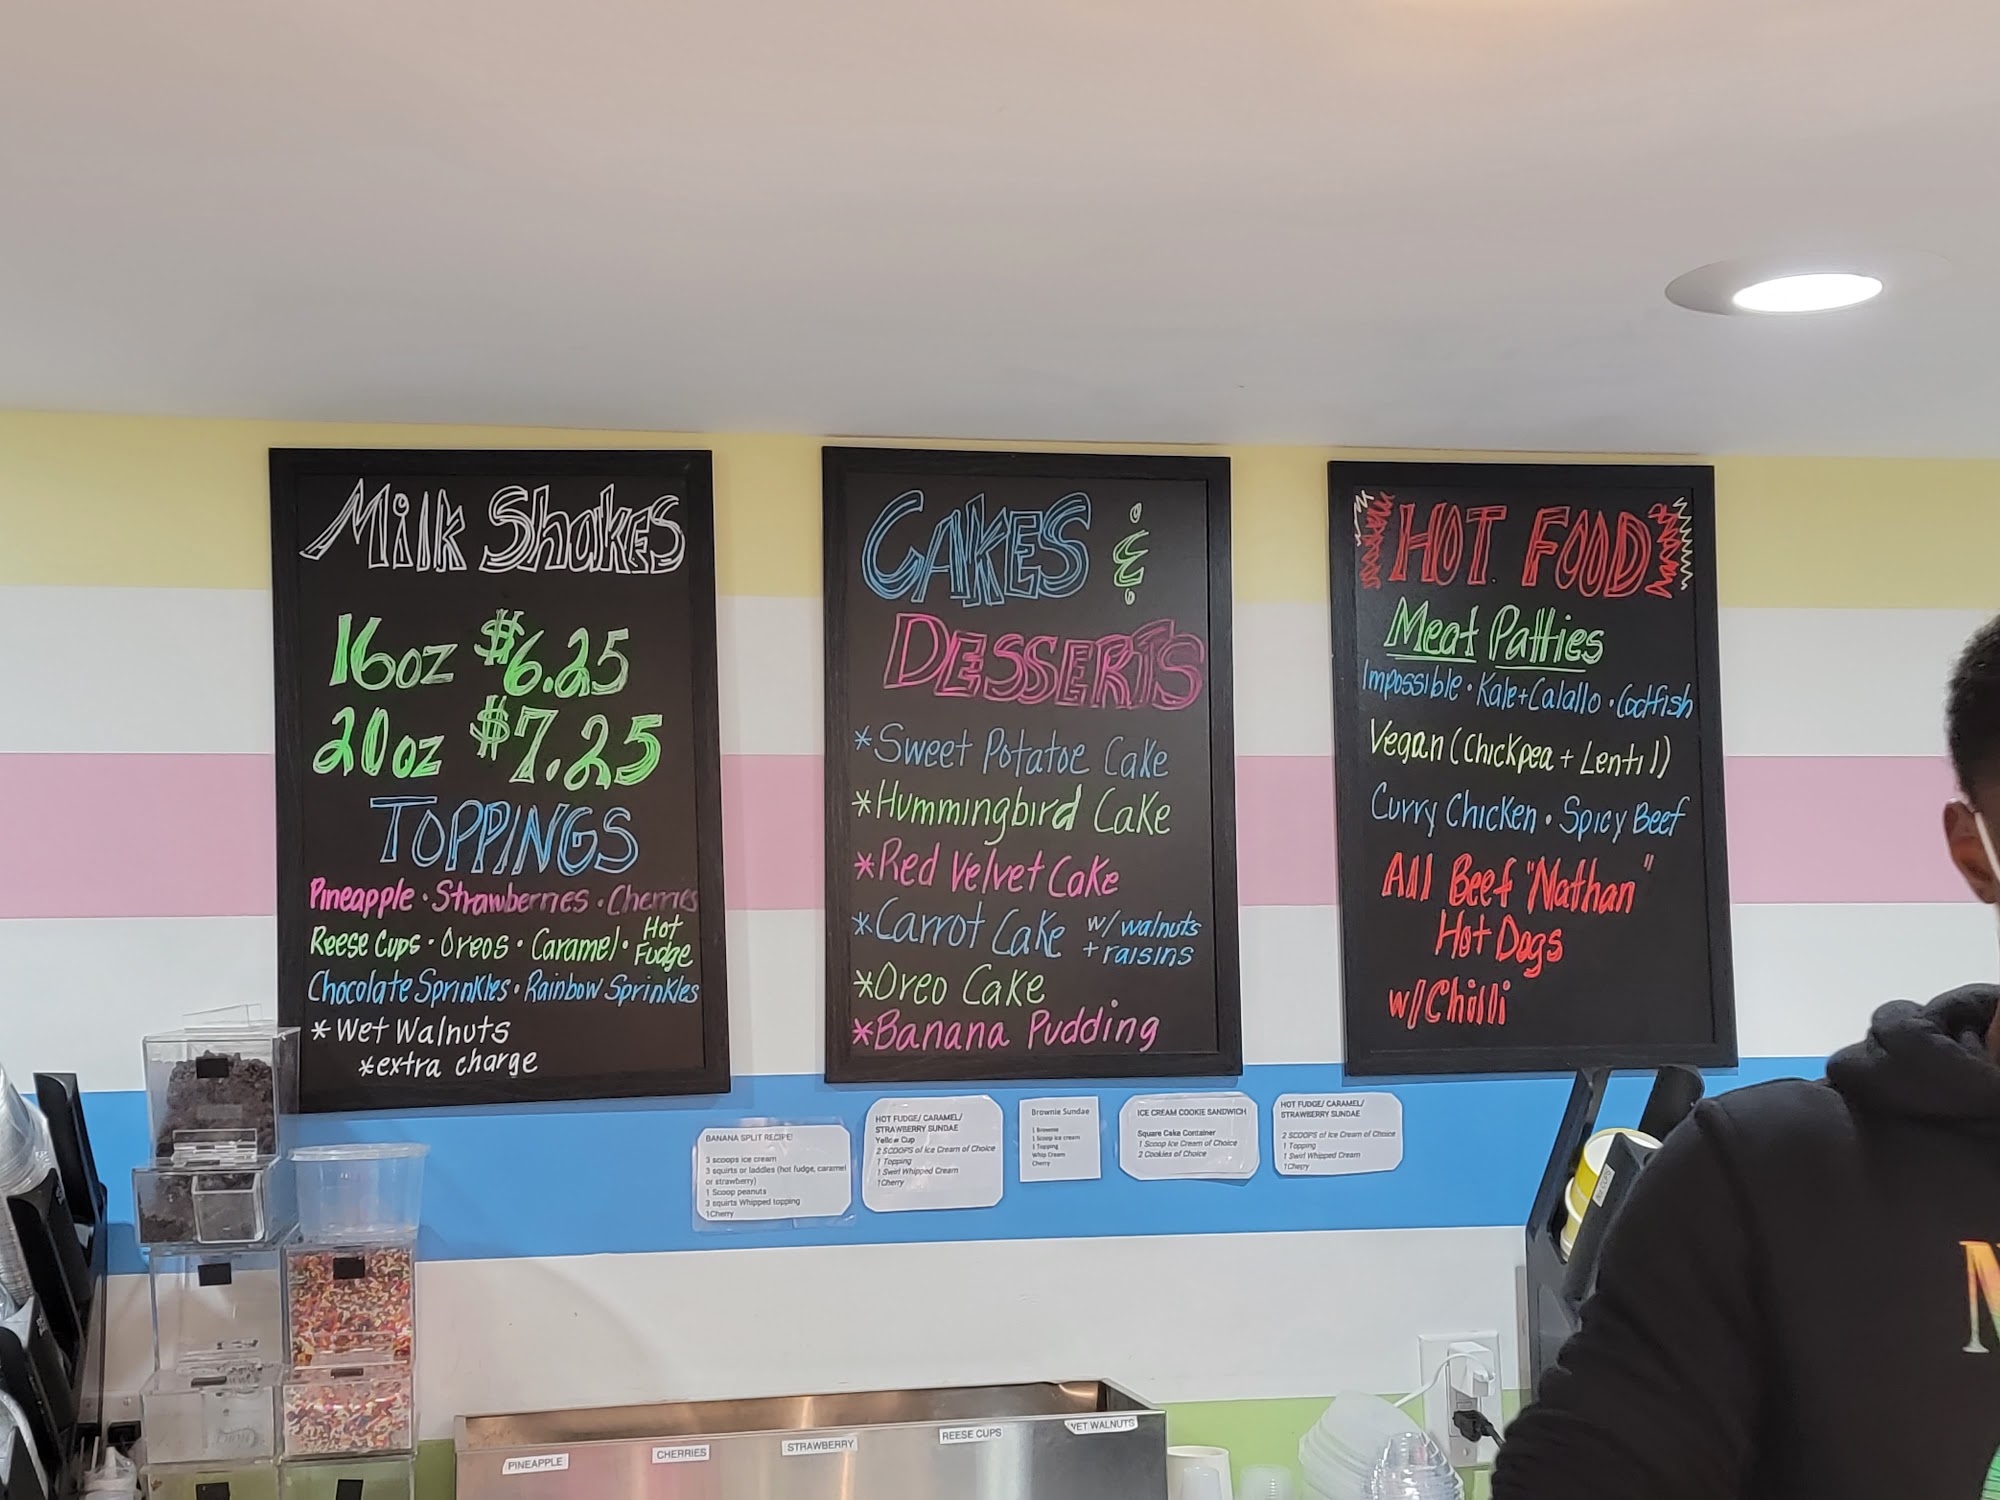 Milk Shakes
16oz $6.25
20oz $7.25
TOPPINGS
Pineapple · Strawberries · Cherries
Reese Cups · Oreos · Caramel · Hot Fudge
Chocolate Sprinkles · Rainbow Sprinkles
* Wet Walnuts
*extra charge
CAKES &
DESSERTS
*Sweet Potatoe Cake
*Hummingbird Cake
*Red Velvet Cake
*Carrot Cake w/ walnuts + raisins
*Oreo Cake
*Banana Pudding
HOT FOOD
Meat Patties
Impossible · Kale + Calallo · Codfish
Vegan (Chickpea + Lentil)
Curry Chicken · Spicy Beef
All Beef "Nathan"
Hot Dogs
w/Chilli
BANANA SPLIT RECIPE!
3 scoops ice cream
3 squirts or laddles (hot fudge, caramel
or strawberry)
1 Scoop peanuts
3 squirts Whipped topping
1Cherry
HOT FUDGE/ CARAMEL/
STRAWBERRY SUNDAE
Yellow Cup
2 SCOOPS of Ice Cream of Choice
1 Topping
1 Swirl Whipped Cream
1Cherry
Brownie Sundae
1 Brownie
1 Scoop ice cream
1 Topping
Whip Cream
Cherry
ICE CREAM COOKIE SANDWICH
Square Cake Container
1 Scoop Ice Cream of Choice
2 Cookies of Choice
HOT FUDGE/ CARAMEL/
STRAWBERRY SUNDAE
2 SCOOPS of Ice Cream of Choice
1 Topping
1 Swirl Whipped Cream
1Cherry
PINEAPPLE
CHERRIES
STRAWBERRY
REESE CUPS
WET WALNUTS